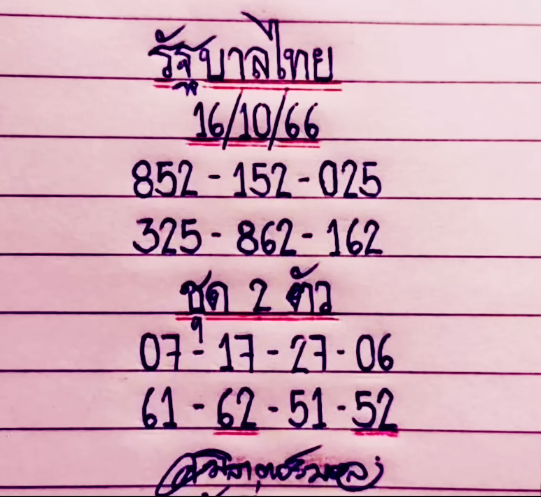 รัฐบาลไทย
16/10/66
852 - 152 - 025
325 - 862 - 162
ชุด 2 ตัว
07 - 17 - 27 - 06
61 - 62 - 51 - 52